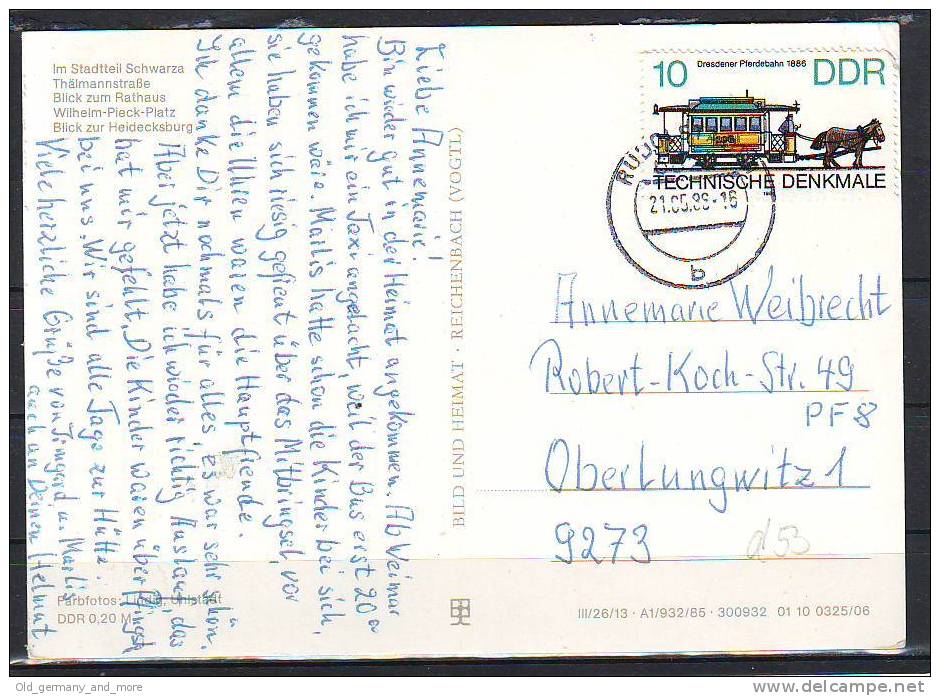 Im Stadtteil Schwarza
Thälmannstraße
Blick zum Rathaus
Wilhelm-Pieck-Platz
Blick zur Heidecksburg
Liebe Annemarie!
Bin wieder gut in der Heimat angekommen. Ab Weimar
habe ich mir ein Taxi angelacht, weil der Bus erst 20
gekommen wäre. Marlis hatte schon die Kinder bei sich,
sie haben sich riesig gefreut über das Mitbringsel, vor
allem die Uhren waren die Hauptfreude.
Ich danke Dir nochmals für alles, es war sehr schön.
Aber jetzt habe ich wieder richtig Auslauf, das
hat mir gefehlt. Die Kinder waren über Pfingsten
bei uns. Wir sind alle Tage zur Hütte.
Viele herzliche Grüße von Irmgard u. Marlis
auch an Deinen Helmut
Farbfotos: Lindig, Uhlstädt
DDR 0,20 M
BILD UND HEIMAT · REICHENBACH (VOGTL)
Dresdener Pferdebahn 1886
10 DDR
TECHNISCHE DENKMALE
21.05.86-16
b
Annemarie Weibrecht
Robert-Koch-Str. 49
PF 8
Oberlungwitz 1
9273
d 53
III/26/13 · A1/932/85 · 300932 01 10 0325/06
Old_germany_and_more
www.delcampe.net